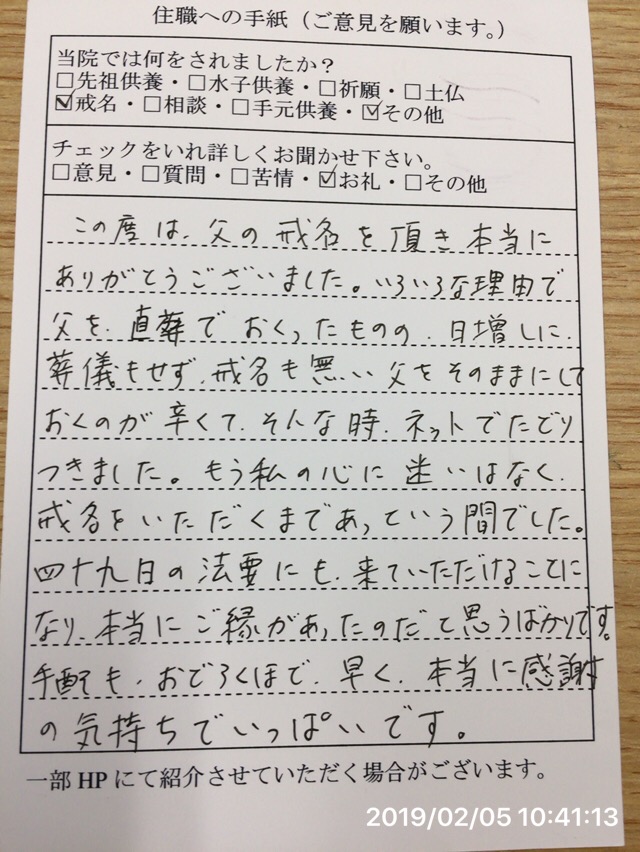 住職への手紙（ご意見を願います。）
当院では何をされましたか？
□先祖供養・□水子供養・□祈願・□土仏
☑戒名・□相談・□手元供養・☑その他
チェックをいれ詳しくお聞かせ下さい。
□意見・□質問・□苦情・☑お礼・□その他
この度は、父の戒名を頂き本当に
ありがとうございました。いろいろな理由で
父を、直葬でおくったものの、日増しに、
葬儀もせず、戒名も無い父をそのままにして
おくのが辛くて、そんな時、ネットでたどり
つきました。もう私の心に迷いはなく、
戒名をいただくまであっという間でした。
四十九日の法要にも、来ていただけることに
なり、本当にご縁があったのだと思うばかりです。
手配も、おどろくほど、早く、本当に感謝
の気持ちでいっぱいです。
一部HPにて紹介させていただく場合がございます。
2019/02/05 10:41:13